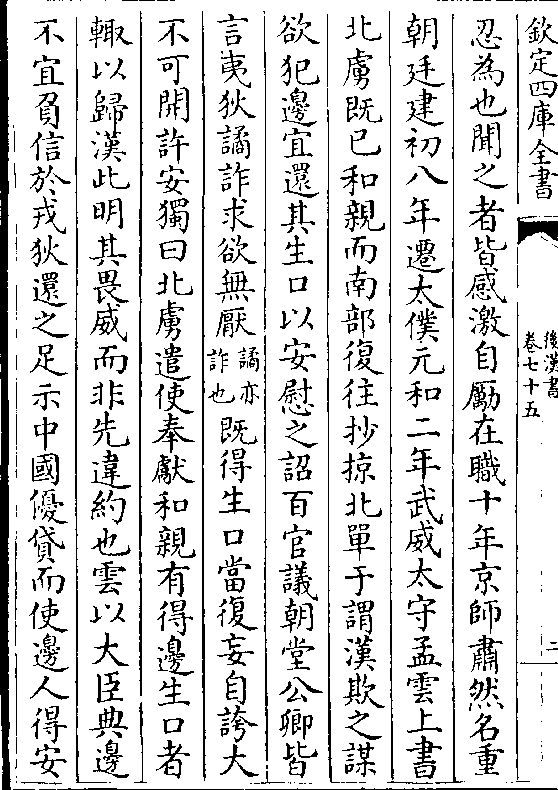 欽定四庫全書
後漢書
卷七十五
二
忍為也聞之者皆感激自勵在職十年京師肅然名重
朝廷建初八年遷太僕元和二年武威太守孟雲上書
北虜既已和親而南部復往抄掠北單于謂漢欺之謀
欲犯邊宜還其生口以安慰之詔百官議朝堂公卿皆
言夷狄譎詐求欲無厭譎亦詐也既得生口當復妄自誇大
不可開許安獨曰北虜遣使奉獻和親有得邊生口者
輙以歸漢此明其畏威而非先違約也雲以大臣典邊
不宜負信於戎狄還之足示中國優貸而使邊人得安